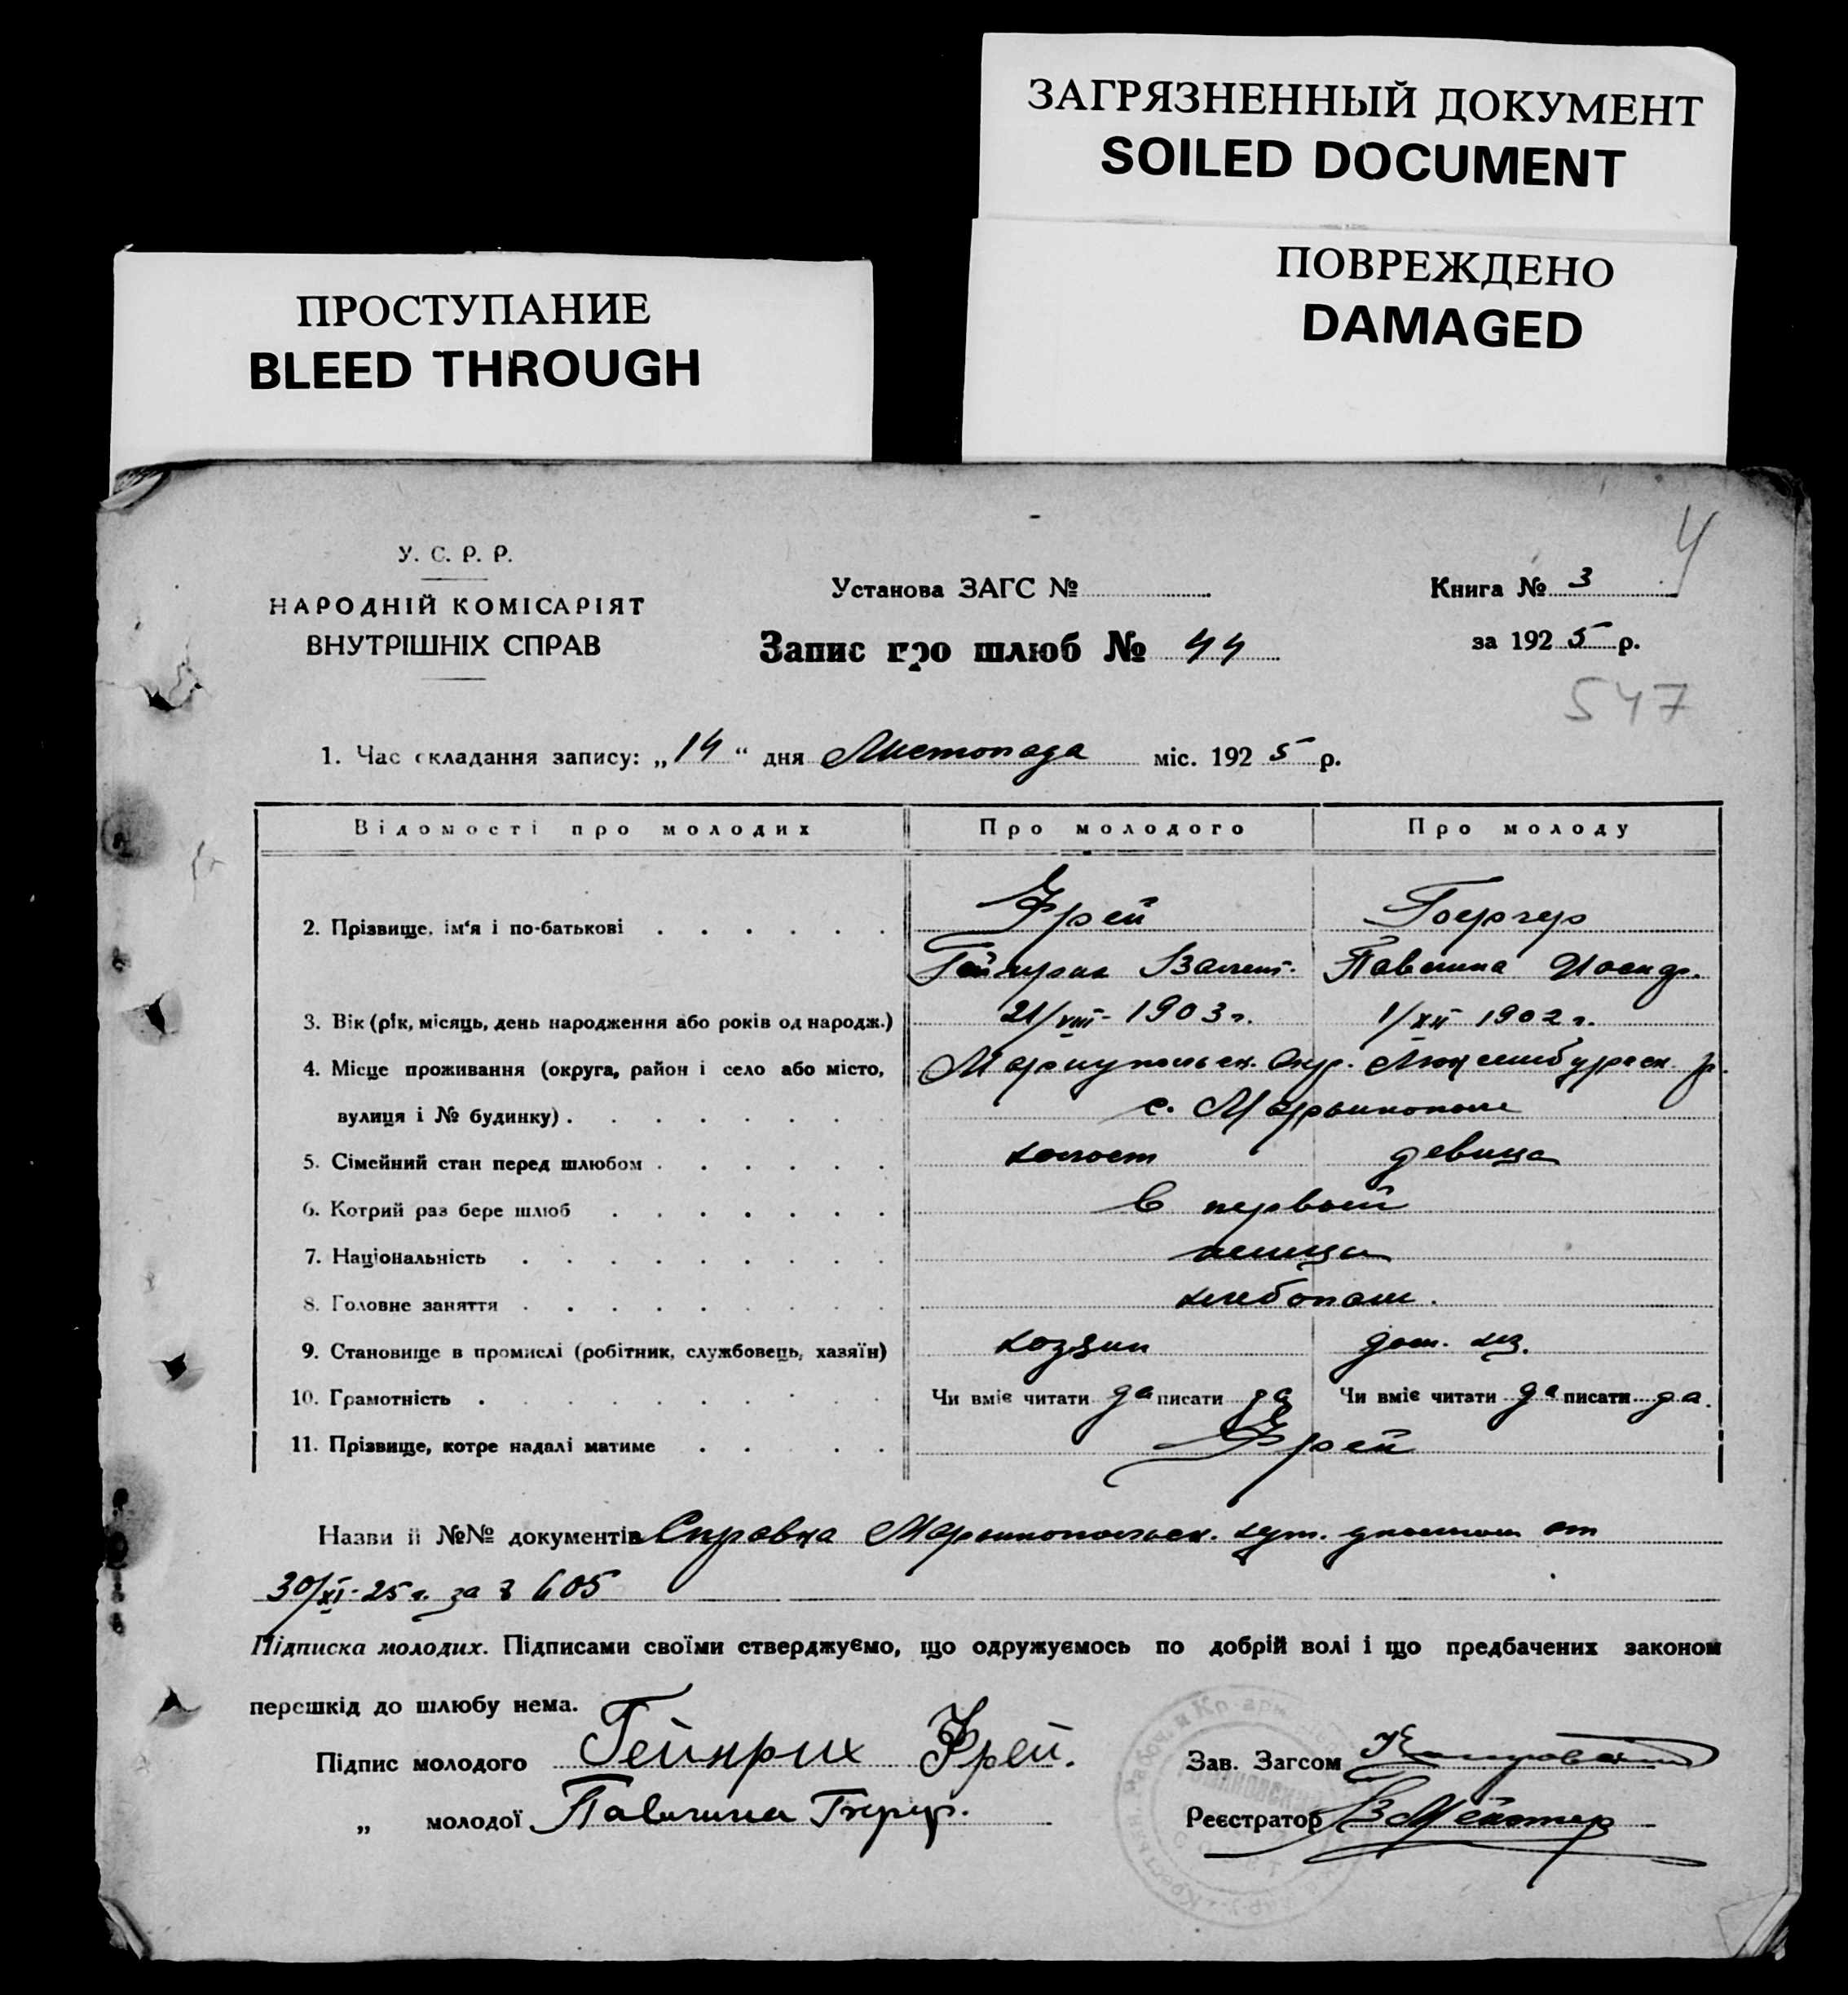 ЗАГРЯЗНЕННЫЙ ДОКУМЕНТ
SOILED DOCUMENT
ПОВРЕЖДЕНО
DAMAGED
ПРОСТУПАНИЕ
BLEED THROUGH
4
У. С. Р. Р.
НАРОДНІЙ КОМІСАРІЯТ
ВНУТРІШНІХ СПРАВ
Установа ЗАГС №
Запис про шлюб № 44
Книга № 3
за 1925 р.
547
1. Час складання запису: „14“ дня Листопада міс. 1925 р.
Відомості про молодих Про молодого Про молоду
2. Прізвище, ім'я і по-батькові Фрей
Гейнрих Валент. Павлина Иосиф.
3. Вік (рік, місяць, день народження або років од народж.) 21/VIII- 1903 г. 1/XII 1902 г.
4. Місце проживання (округа, район і село або місто, Мариупольск. Окр. Люксембургск. р.
вулиця і № будинку) с. Марьинополь
5. Сімейний стан перед шлюбом холост девица
6. Котрий раз бере шлюб В первый
7. Національність немцы
8. Головне заняття хлебопаш.
9. Становище в промислі (робітник, службовець, хазяїн) хозяин дом. хоз.
10. Грамотність Чи вміє читати да писати да Чи вміє читати да писати да.
11. Прізвище, котре надалі матиме Фрей
Назви й №№ документів Справка Марьинопольск. от
30/XI-25 г. за № 605
Підписка молодих. Підписами своїми стверджуємо, що одружуємось по добрій волі і що предбачених законом
перешкід до шлюбу нема.
Підпис молодого Гейнрих Фрей.
„ молодої Павлина
Зав. Загсом
Реєстратор